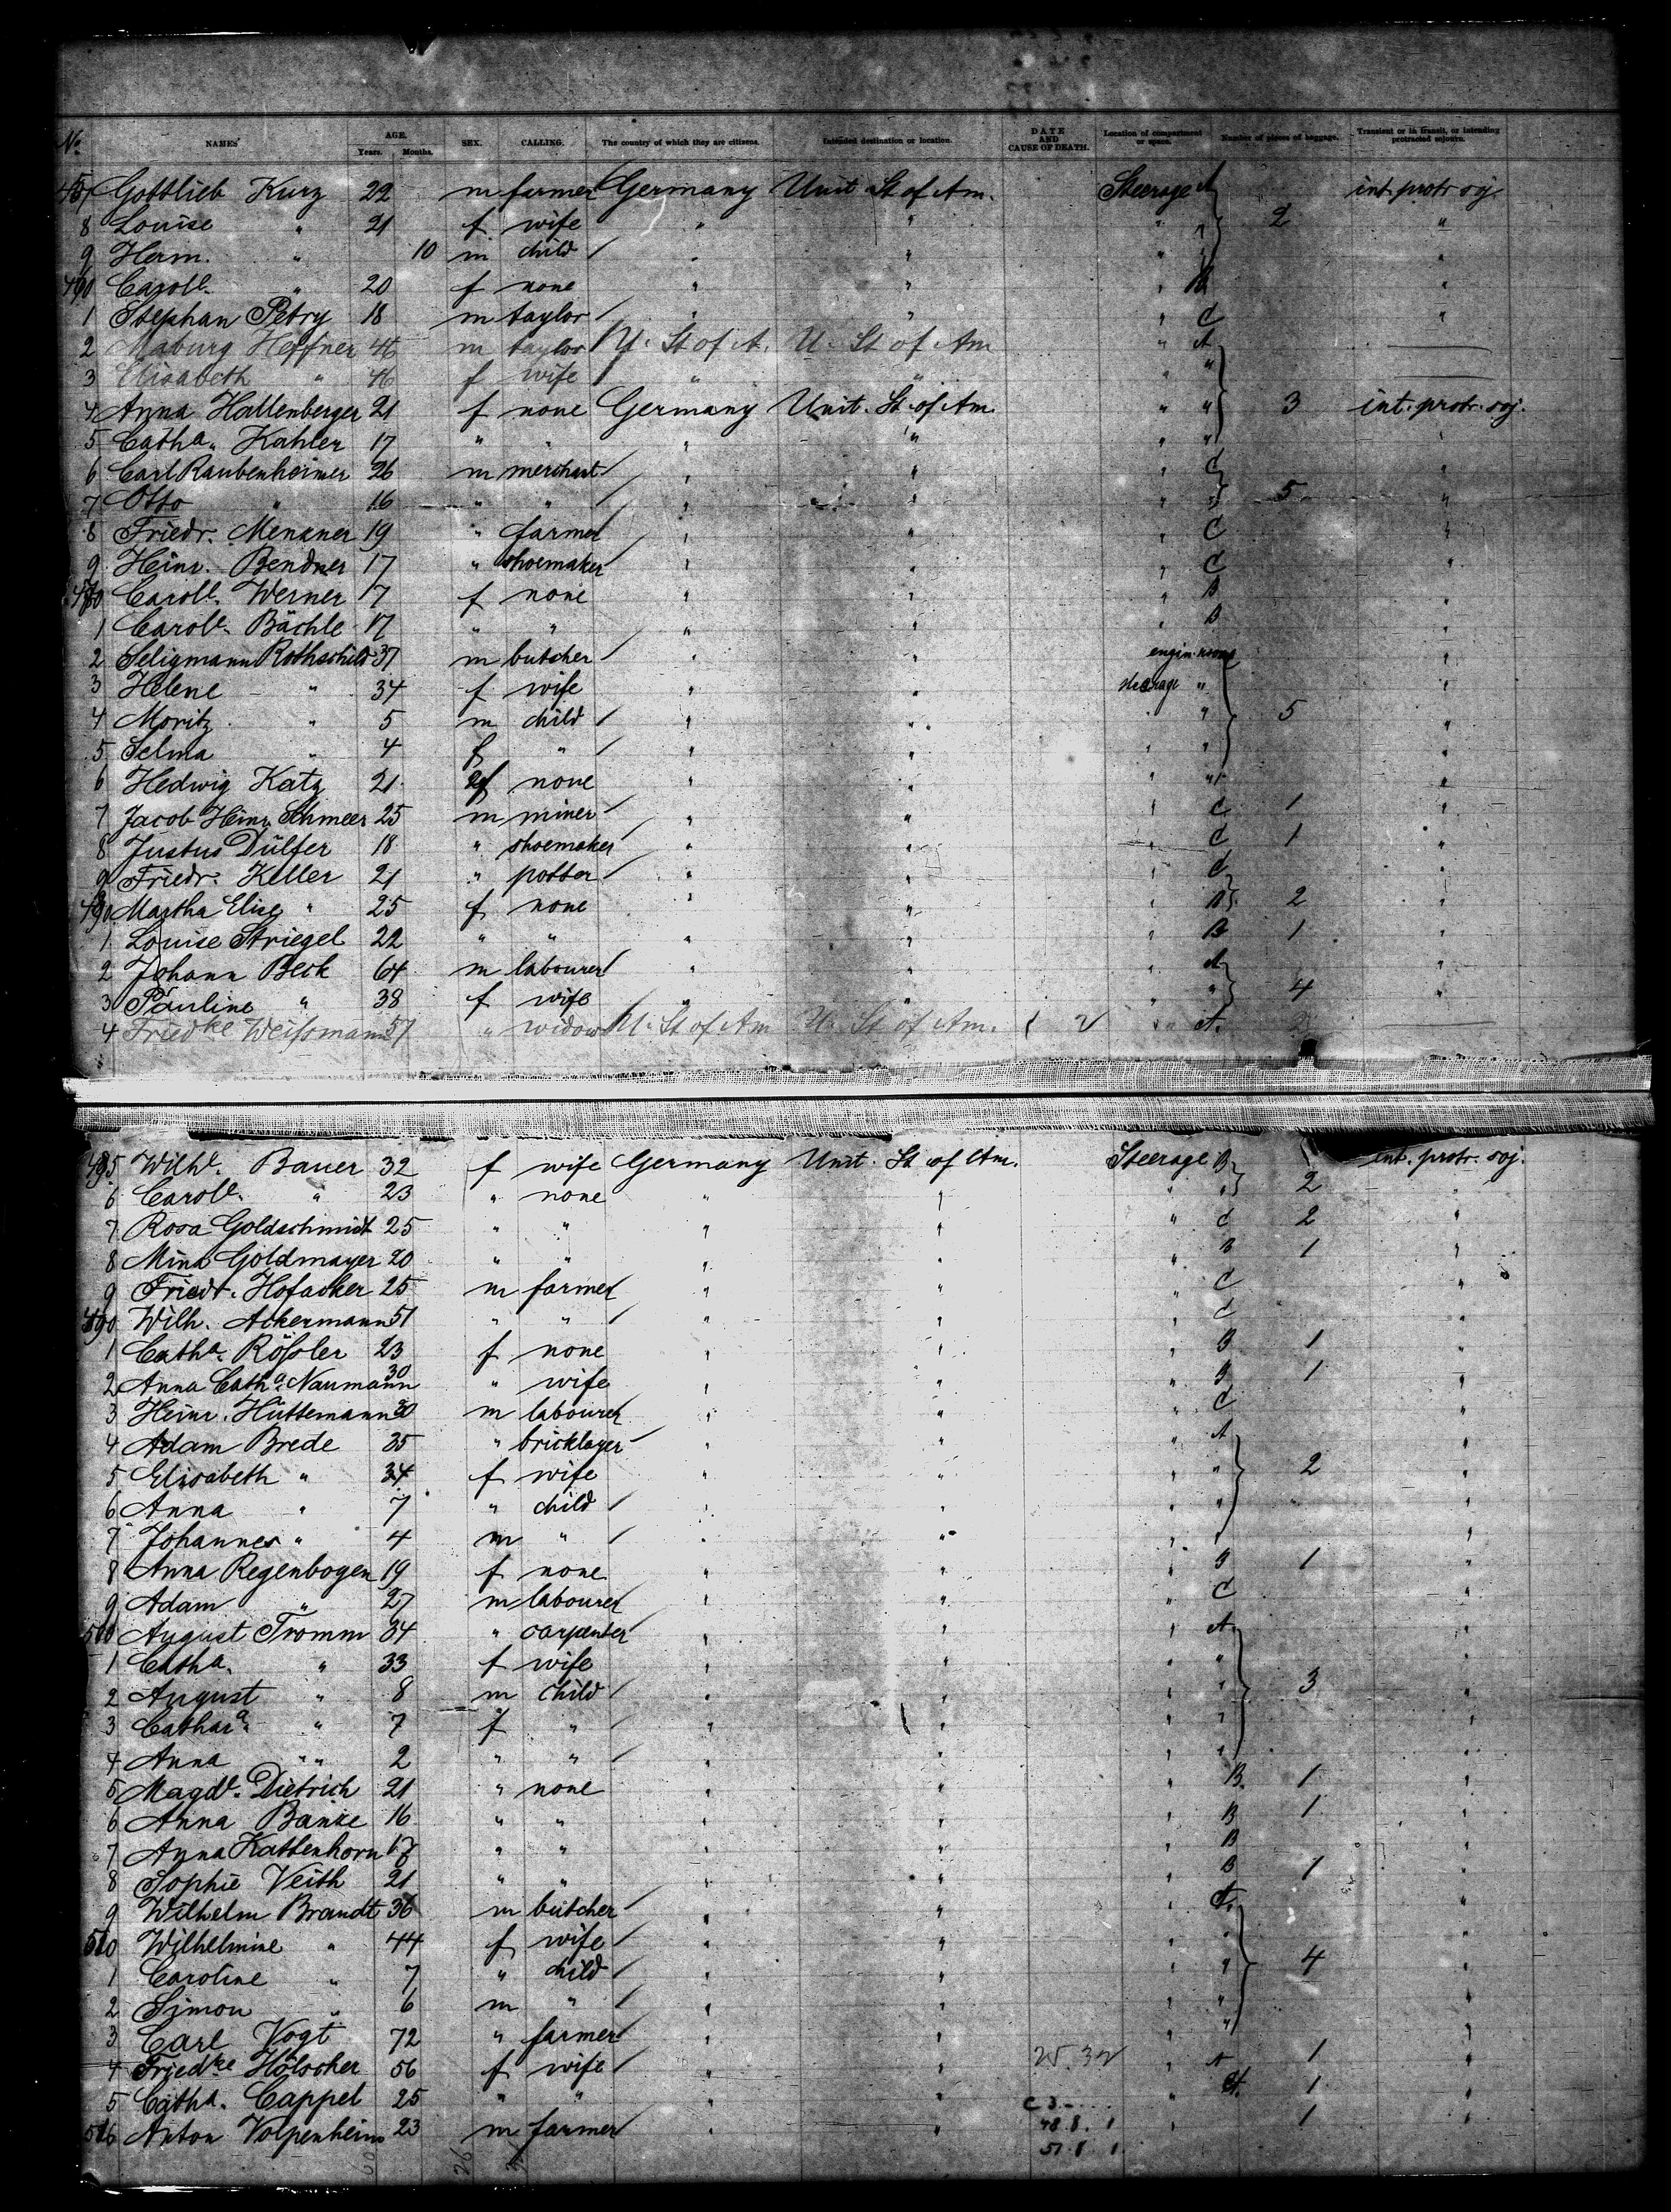 No. NAMES AGE. Years. Months. SEX. CALLING. The country of which they are citizens. Intended destination or location. DATE AND CAUSE OF DEATH. Location of compartment or space. Number of pieces of baggage. Transient or in transit, or intending protracted sojourn.
Gottlieb Kurz 22 m farmer Germany Unit St of Am. Steerage A int. protr soj.
8 Louise " 21 f wife " " " " 2 "
9 Herm. " 10 m child / " " " " "
Caroll. " 20 f none " " " B "
1 Stephan Petry 18 m taylor / " " " C "
2 Maburg Heffner 46 m taylor / U. St of A. U. St of Am " A
3 Elisabeth " 46 f wife / " " " "
4 Anna Hallenberger 21 f none Germany Unit. St. of Am. " " 3 int. protr. soj.
5 Catha. Kahler 17 " " " " " " "
6 Carl Raubenheimer 26 m merchant / " " " C "
7 Otto " 16 " " / " " " " 5 "
8 Friedr. Menkner 19 " farmer / " " " C "
9 Heinr. Bendner 17 " shoemaker / " " " C "
Caroll. Werner 17 f none " " " B "
1 Caroll. Bächle 17 " " " " " B "
2 Seligmann Rothschild 37 m butcher / " " engin. room "
3 Helene " 34 f wife " " steerage " "
4 Moritz " 5 m child / " " " " 5 "
5 Selma " 4 f " / " " " " "
6 Hedwig Katz 21 f none " " " " "
7 Jacob Heinr. Schmeer 25 m miner / " " " C 1 "
8 Justus Dülfer 18 " shoemaker / " " " C 1 "
9 Friedr. Keller 21 " potter / " " " C
Martha Elise " 25 f none " " " B 2 "
1 Louise Striegel 22 " " " " " B 1 "
2 Johann Beck 64 m labourer / " " " A "
3 Pauline " 38 f wife " " " " 4 "
4 Friedke Weißmann 57 " widow U. St of Am U. St of Am. " A. 2
Wilhl. Bauer 32 f wife Germany Unit. St. of Am. Steerage B int. protr. soj.
6 Caroll. " 23 " none " " " " 2 "
7 Rosa Goldschmidt 25 " " " " " C 2 "
8 Mina Goldmayer 20 " " " " " B 1 "
9 Friedr. Hofacker 25 m farmer / " " " C "
Wilh. Ackermann 51 " " / " " " C "
1 Catha. Rößler 23 f none " " " B 1 "
2 Anna Catha. Naumann 30 " wife " " " B 1 "
3 Heinr. Hüttemann 30 m labourer / " " " C "
4 Adam Brede 35 " bricklayer / " " " A "
5 Elisabeth " 34 f wife " " " " 2 "
6 Anna " 7 " child / " " " " "
7 Johannes " 4 m " / " " " " "
8 Anna Regenbogen 19 f none " " " B 1 "
9 Adam " 27 m labourer / " " " C "
500 August Tromm 34 " carpenter / " " " A. "
1 Catha. " 33 f wife " " " " "
2 August " 8 m child / " " " " 3 "
3 Cathara. " 7 f " / " " " " "
4 Anna " 2 " " / " " " " "
5 Magdl. Dietrich 21 " none " " " B. 1 "
6 Anna Banke 16 " " " " " B 1 "
7 Anna Kattenhorn " " " " " B "
8 Sophie Veith 21 " " " " " B 1 "
9 Wilhelm Brandt 36 m butcher / " " " A. "
510 Wilhelmine " 44 f wife / " " " " "
1 Caroline " 7 " child / " " " " 4 "
2 Simon " 6 m " / " " " " "
3 Carl Vogt 72 " farmer / " " " " "
4 Friedke Hölscher 56 f wife / " " " A 1 "
5 Catha. Cappel 25 " " " " " A. 1 "
516 Anton Volpenheim 23 m farmer / " " " 1 "